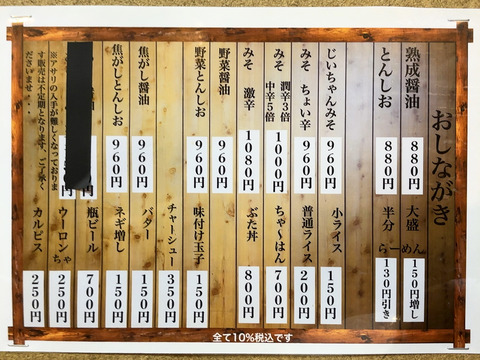 おしながき
熟成醤油 880円
とんしお 880円
じいちゃんみそ 960円
みそ ちょい辛 960円
みそ 潤辛3倍 中辛5倍 1000円
みそ 激辛 1080円
野菜醤油 960円
野菜とんしお 960円
焦がし醤油 960円
焦がしとんしお 960円
※アサリの入手が難しくなっておりま
す販売は不定期となります、ご了承く
ださいませ・・
らーめん
大盛 150円増し
半分 130円引き
小ライス 150円
普通ライス 200円
ちゃ〜はん 700円
ぶた丼 800円
味付け玉子 150円
チャーシュー 350円
バター 150円
ネギ増し 150円
瓶ビール 700円
ウーロンちゃ 250円
カルピス 250円
全て10%税込です